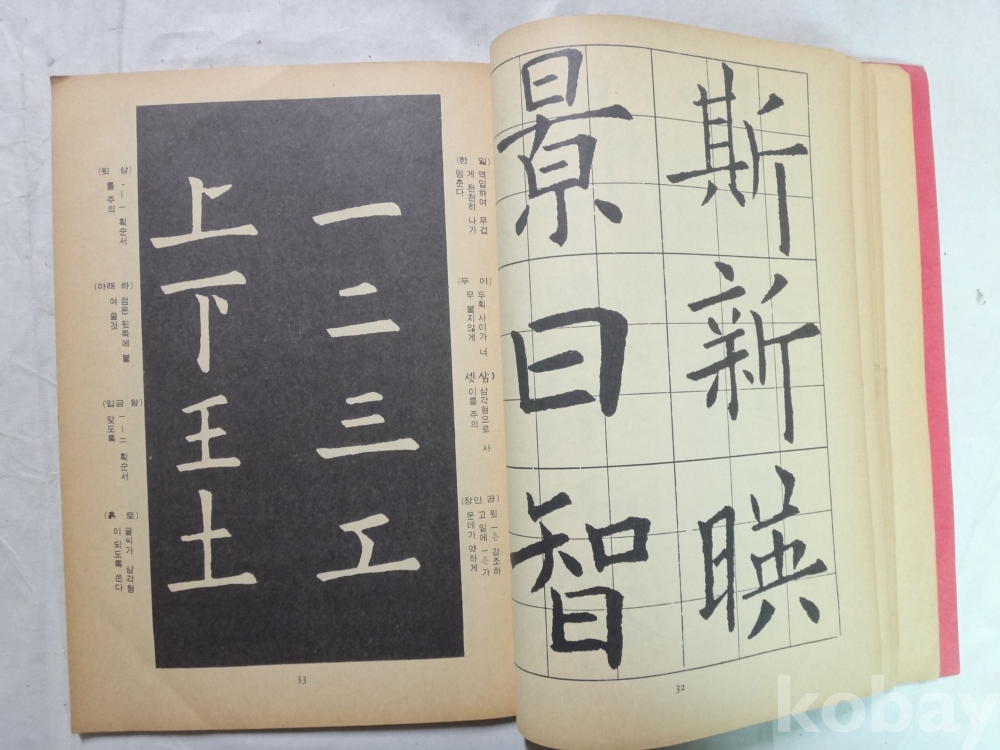 斯新暎
景曰智
32
(한 일)
역입하여 무겁
게 천천히 나가
멈춘다
(두 이)
두획 사이가 너
무 붙지않게
(셋 삼)
삼각형으로 사
이를 주의
(장인 공)
윗 一은 강조하
고 밑에 一은 가
운데가 약하게
一二三工
上下王土
(윗 상)
획순서
를 주의
(아래 하)
점은 윗쪽에 붙
여 쓸것
(임금 왕)
一ㅣ二 획순서
맞도록
(흙 토)
글씨가 삼각형
이 되도록 쓴다
33
kobay